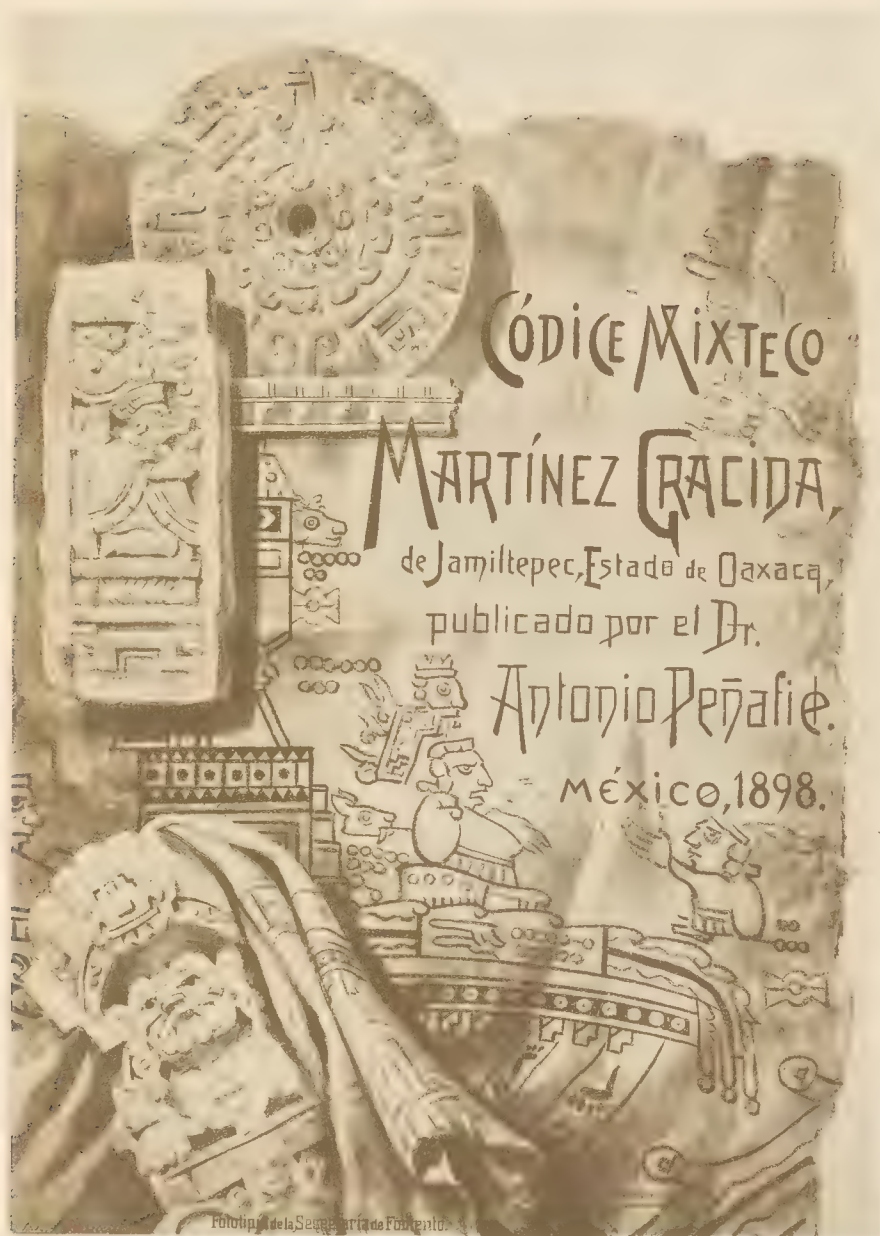 CÓDICE MIXTECO
MARTÍNEZ GRACIDA,
de Jamiltepec, Estado de Oaxaca,
publicado por el Dr.
Antonio Peñafiel.
MÉXICO, 1898.
Fototipia de la Secretaría de Fomento.